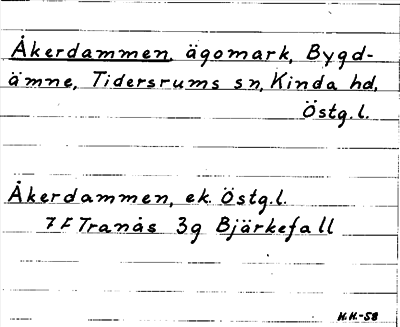 Åkerdammen, ägomark, Bygd-
ämne, Tidersrums sn, Kinda hd,
Östg.l.
Åkerdammen, ek. Östg.l.
7 F Tranås 3g Bjärkefall
H.H.-58